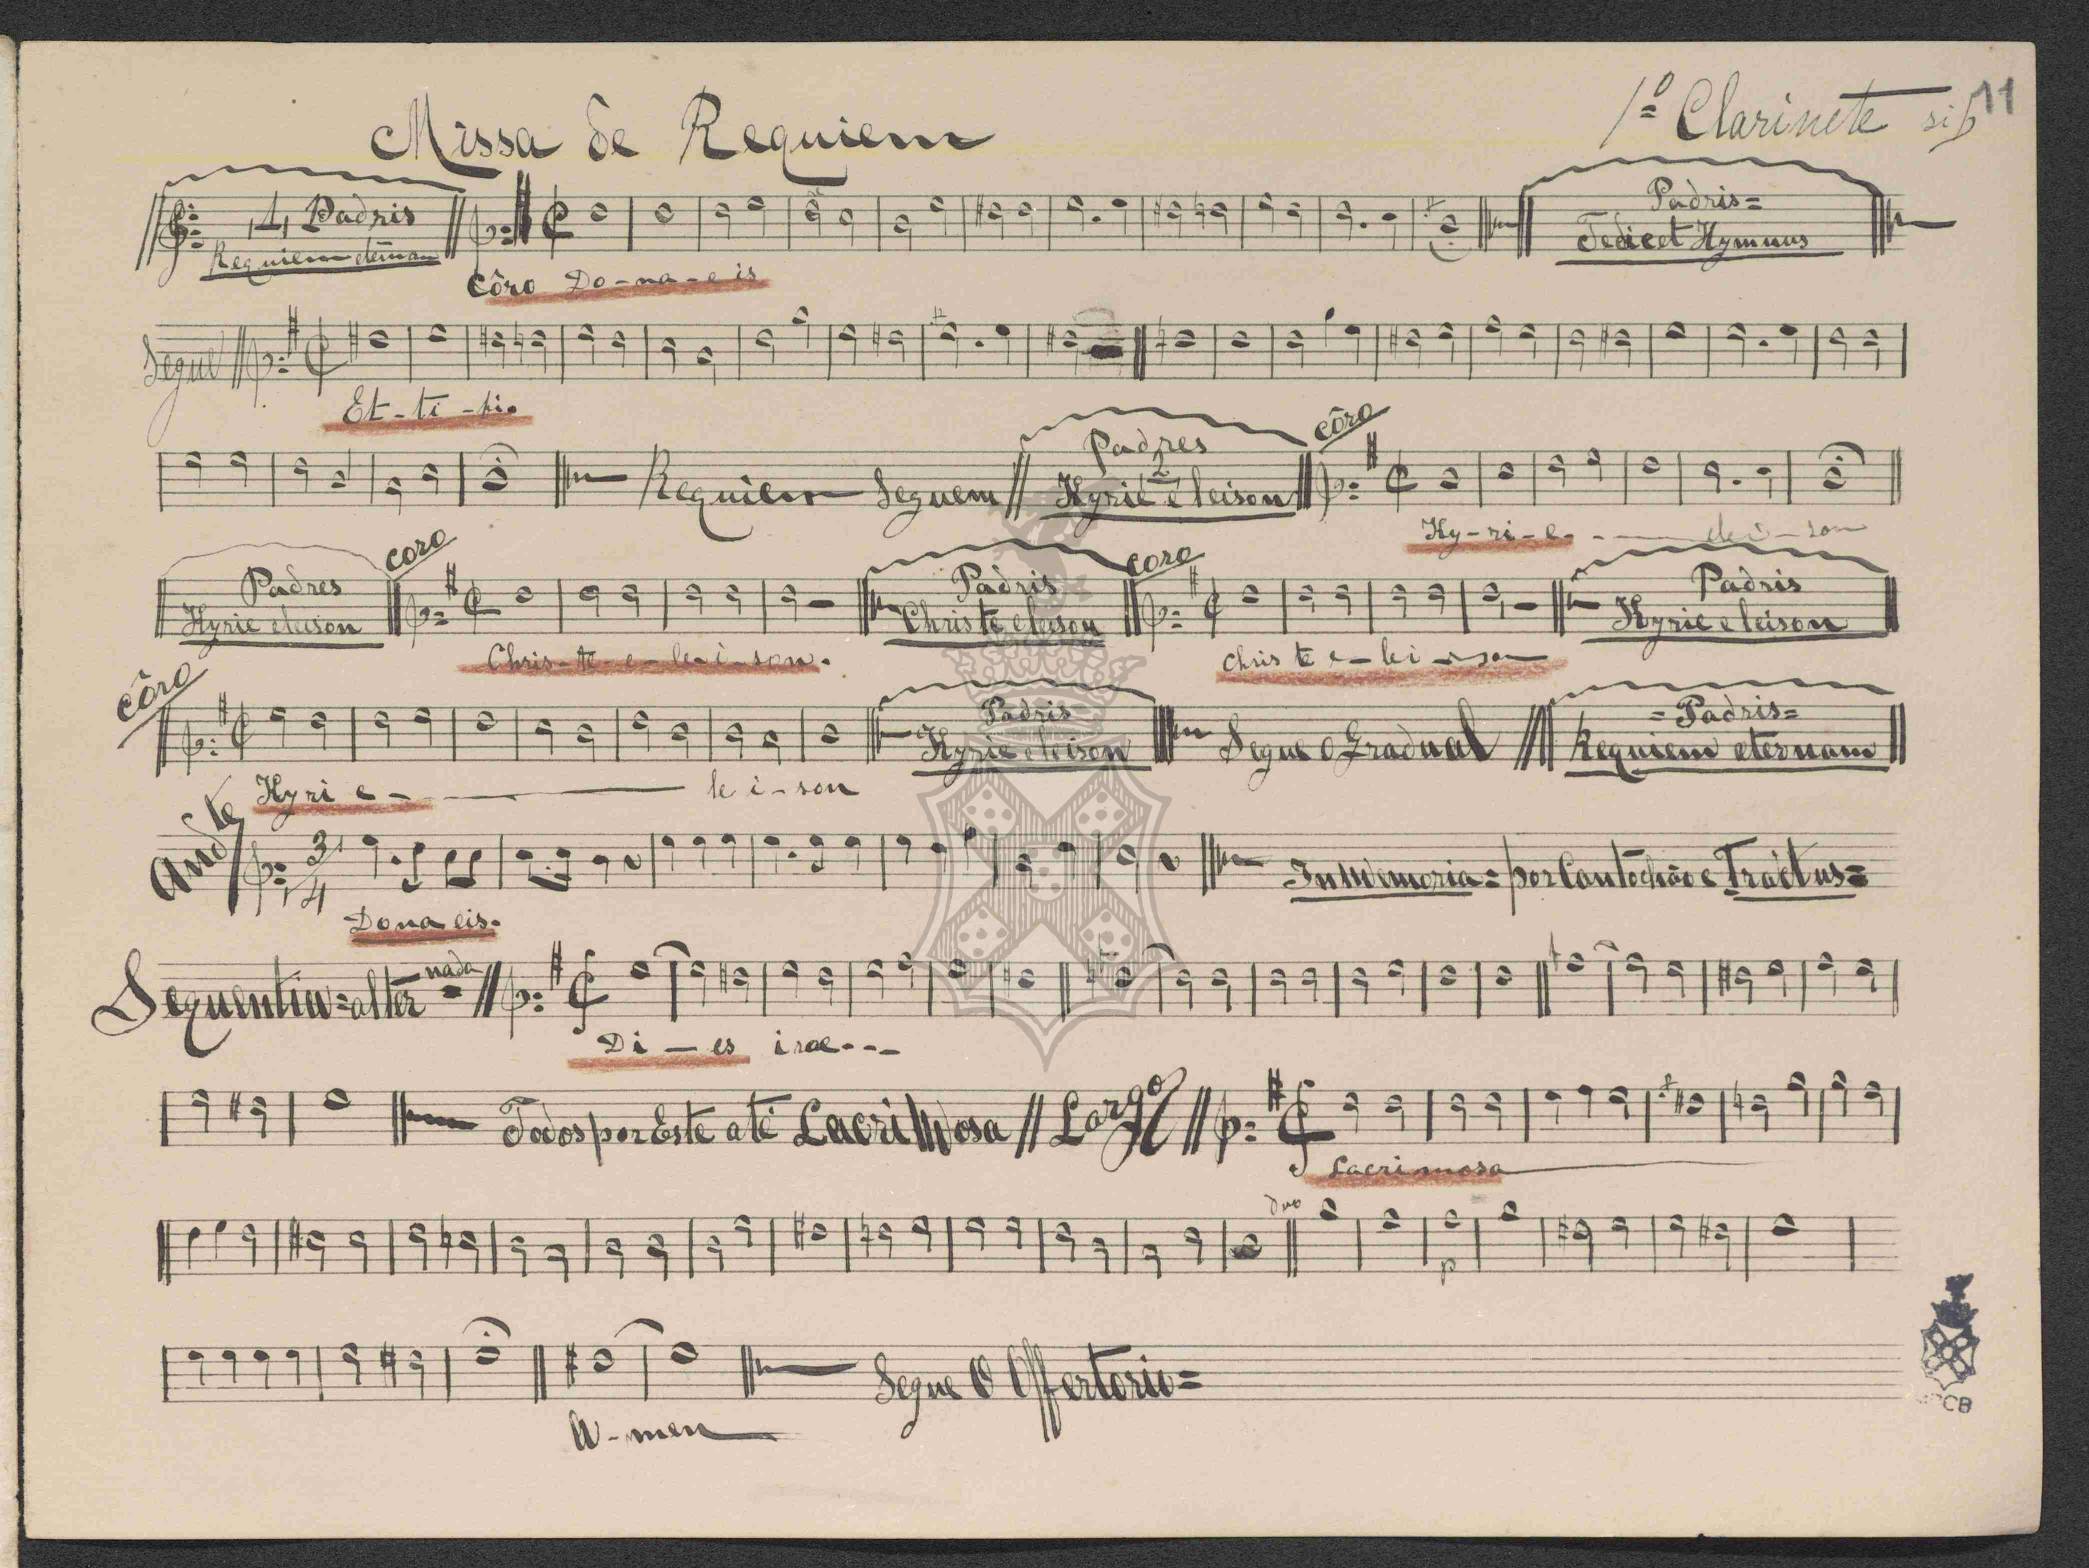 Missa de Requiem
1º Clarinete si b
11
Padris
Requiem
Padris =
Tedecet Hymnus
Côro Do-na-e is
Segue
Et-ti-bi.
Requiem Seguem
Padres
Kyrie eleison
côro
Ky-ri-e - - - elei-son
Padres
Kyrie eleison
coro
Padris
Christe eleison
coro
Padris
Kyrie eleison
Chris-te-e-le-i-son.
Chris te e-lei-son
côro
Padris
Kyrie eleison
Segue o Gradual
= Padris =
Requiem eternam
Kyri e - le i-son
Andte
3/4
In memoria = por Cantochão e Tractus =
Dona eis.
Sequentia = alter
nada
Di - es irae - - -
Todos por Este até Lacrimosa
Largo
Lacrimosa
duo
p
Segue O Offertorio =
A-men
CB